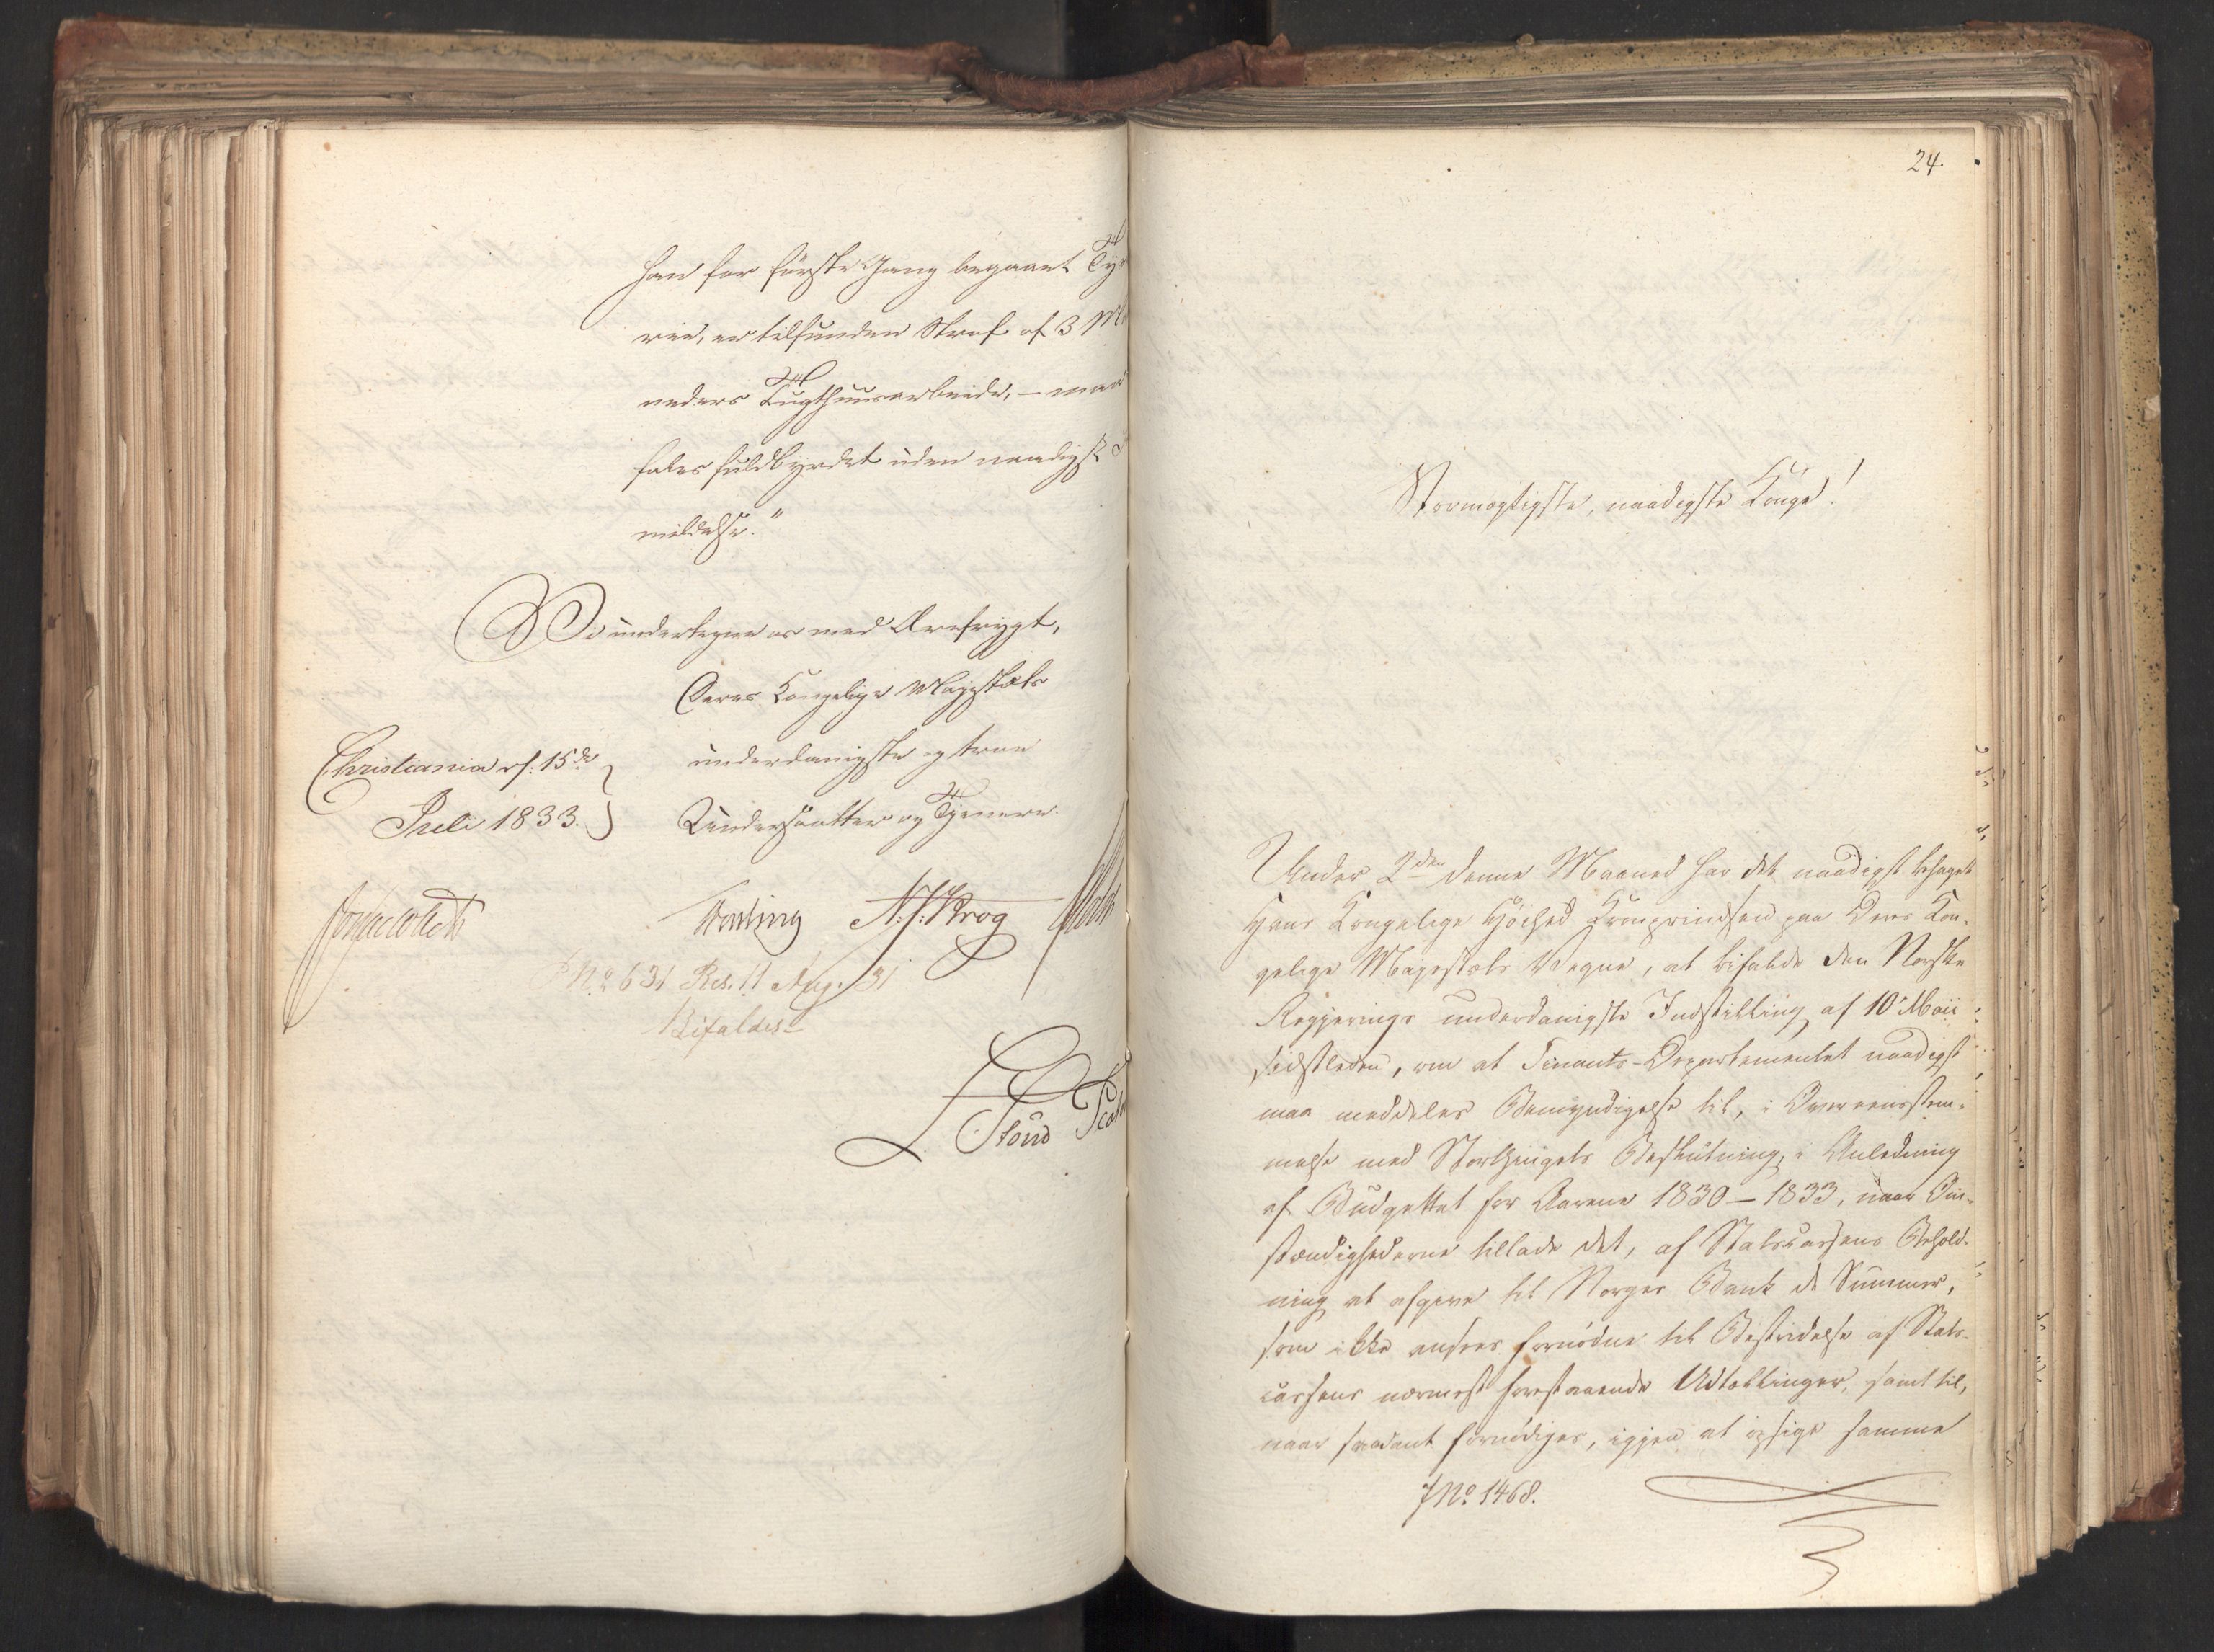 han for første Gang begaaet Ty
rie, er tilfunden Straf af 3 M
neders Tugthuusarbeide, – maa
fales fuldbyrdet uden naadigst
mildelse."
Vi undertegne os med Ærefrygt,
Deres Kongelige Majestæts
Christiania d: 15de
underdanigste og troe
Juli 1833.
Undersaatter og Tjenere.
N. J. Krog
No 631 Res. 11 Aug. 31
Bifaldes
24.
Stormægtigste, naadigste Konge!
Under 2den denne Maaned har det naadigst behaget
Hans Kongelige Høihed Kronprindsen paa Deres Kon-
gelige Majestæts Vegne, at bifalde den Norske
Regjerings underdanigste Indstilling af 10 Maii
sidstleden, om at Finants-Departementet naadigst
maa meddeles Bemyndigelse til, i Overeensstem-
melse med Storthingets Beslutning, i Anledning
af Büdgettet for Aarene 1830–1833, naar Om-
stændighederne tillade det, af Statscassens Behold-
ning at afgive til Norges Bank de Summer,
som ikke ansees fornødne til Bestridelse af Stats-
cassens nærmest forestaaende Udtællinger, samt til,
naar saadant fornødiges, igjen at opsige samme
JNo 1468.